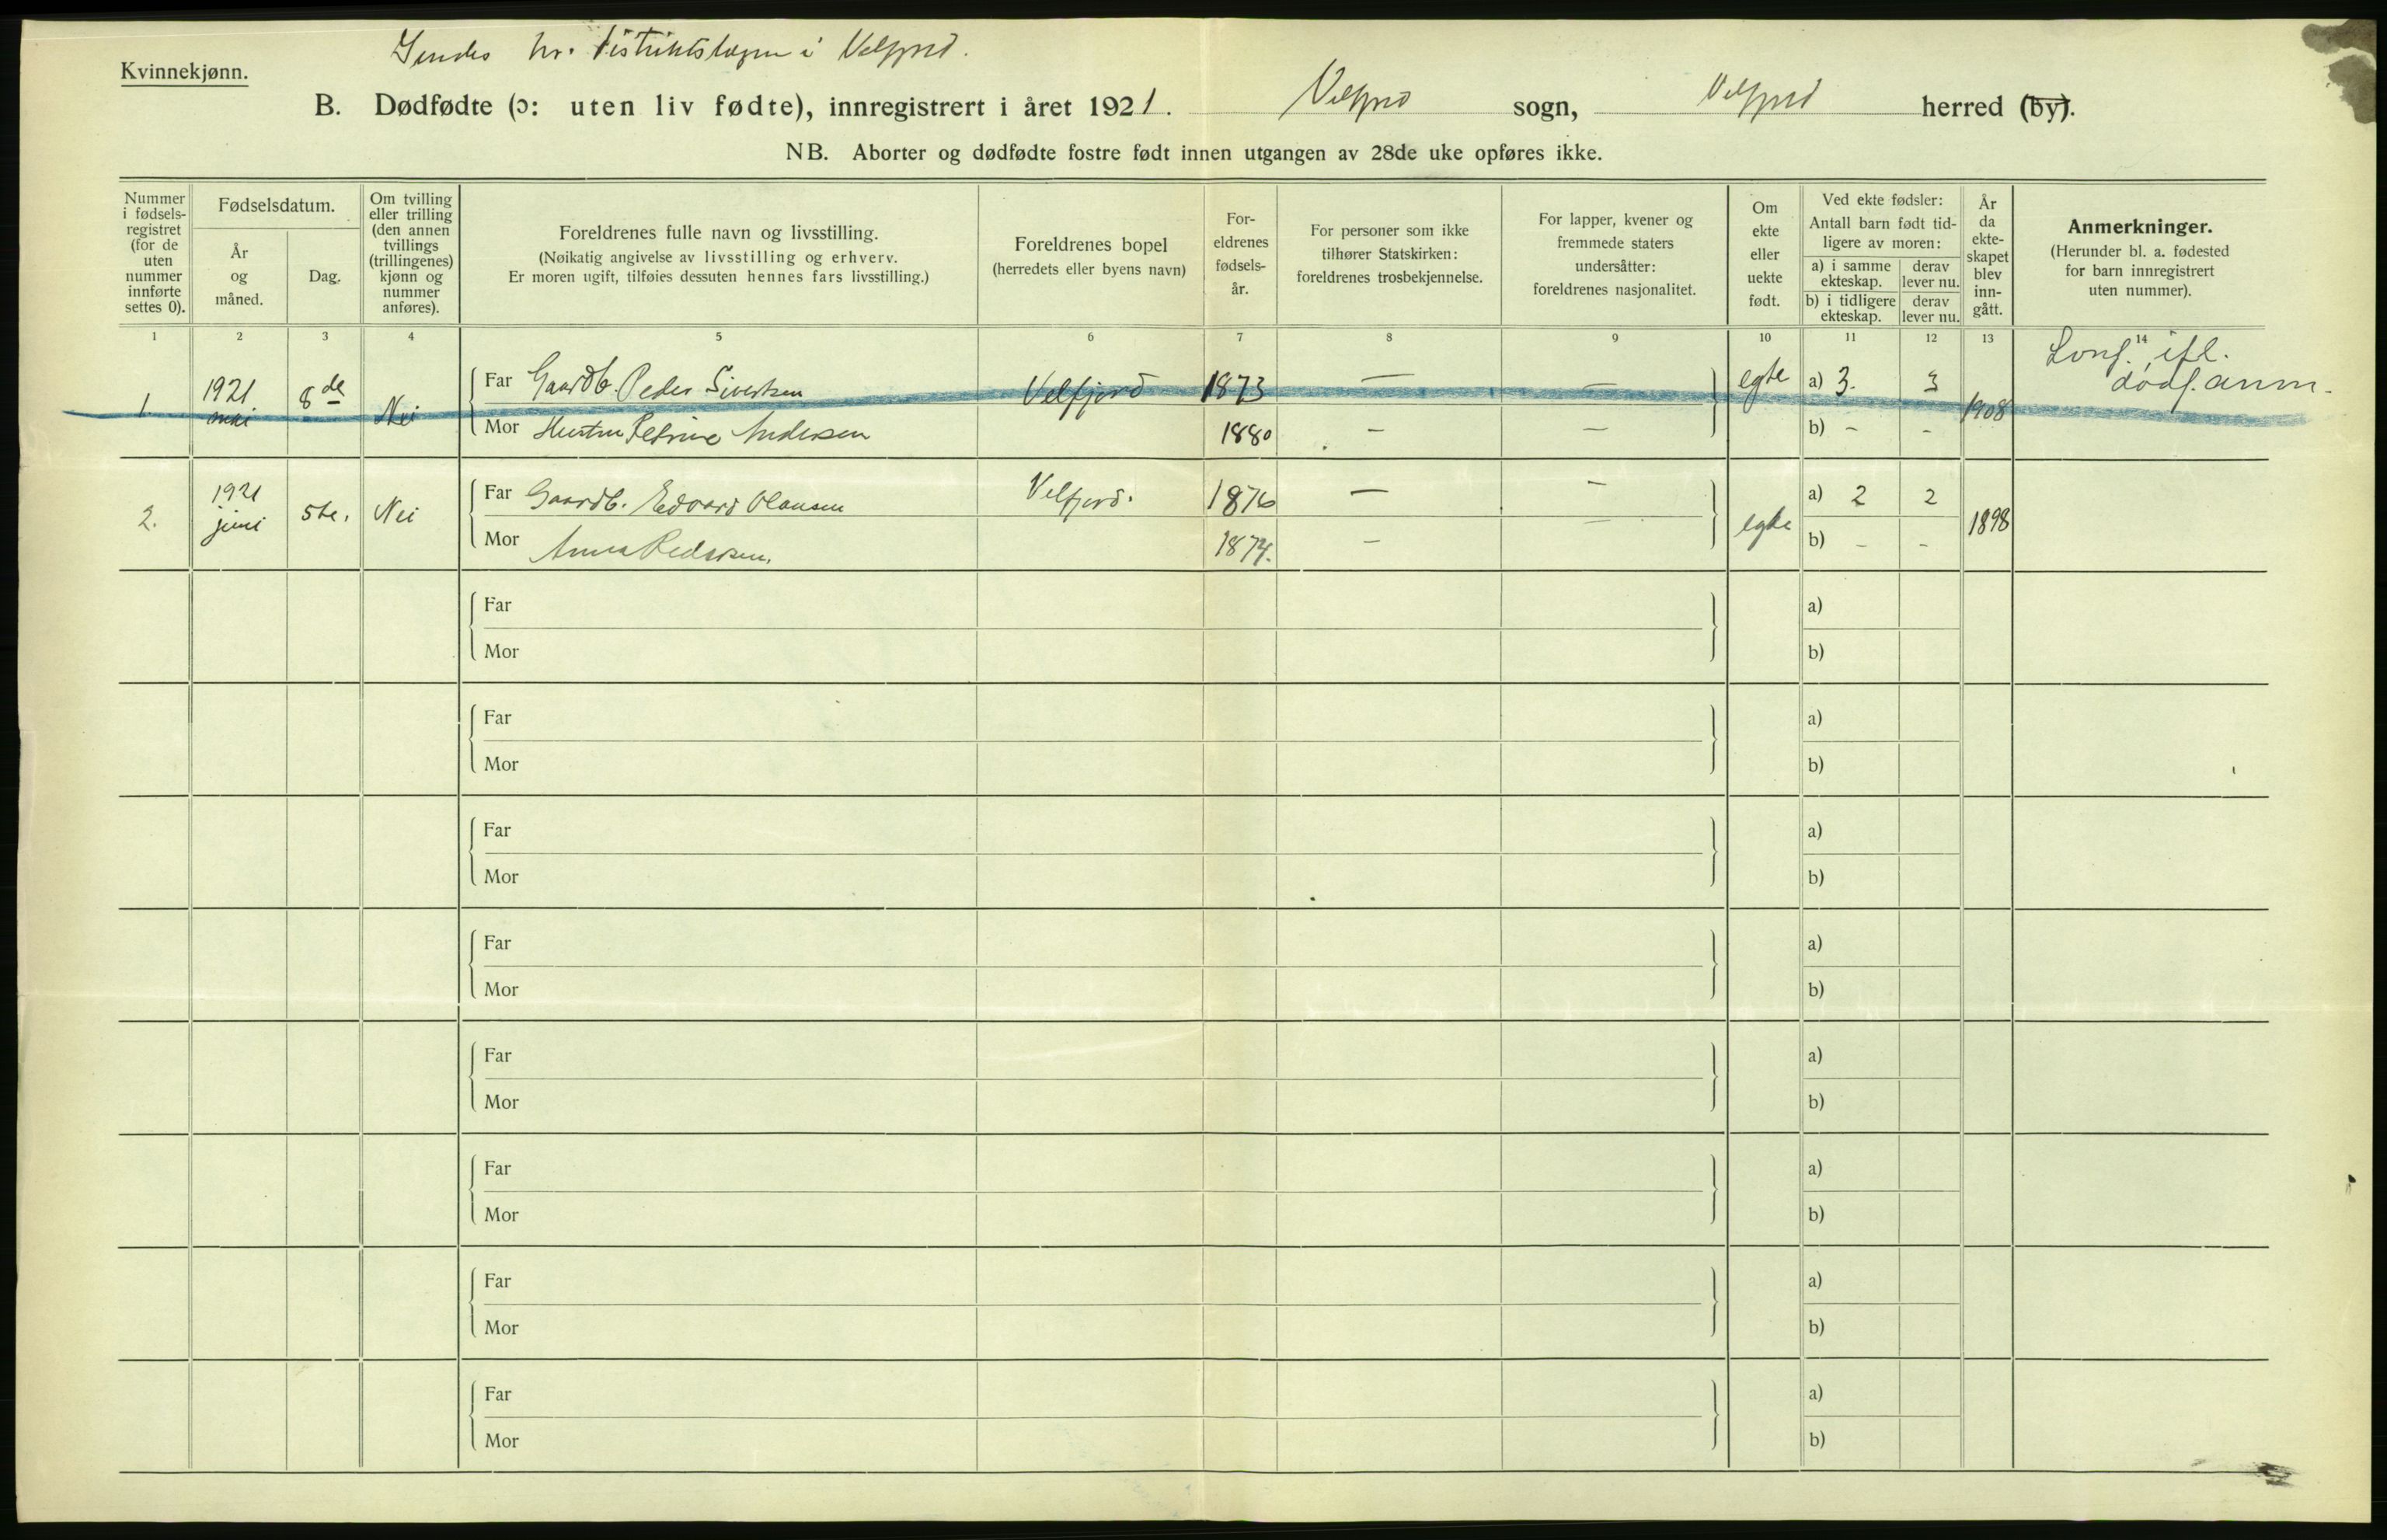 Sendes hr. distriktslægen i Velfjord.
Kvinnekjønn.
B. Dødfødte (ɔ: uten liv fødte), innregistrert i året 1921. Velfjord sogn, Velfjord herred (by).
NB. Aborter og dødfødte fostre født innen utgangen av 28de uke opføres ikke.
Nummer i fødsels-registret (for de uten nummer innførte settes 0).
Fødselsdatum.
År og måned.
Dag.
Om tvilling eller trilling (den annen tvillings (trillingenes) kjønn og nummer anføres).
Foreldrenes fulle navn og livsstilling.
(Nøikatig angivelse av livsstilling og erhverv.
Er moren ugift, tilføies dessuten hennes fars livsstilling.)
Foreldrenes bopel
(herredets eller byens navn)
For-eldrenes fødsels-år.
For personer som ikke tilhører Statskirken: foreldrenes trosbekjennelse.
For lapper, kvener og fremmede staters undersåtter: foreldrenes nasjonalitet.
Om ekte eller uekte født.
Ved ekte fødsler:
Antall barn født tid-ligere av moren:
a) i samme ekteskap.
derav lever nu.
b) i tidligere ekteskap.
derav lever nu.
År da ekte-skapet blev inn-gått.
Anmerkninger.
(Herunder bl. a. fødested for barn innregistrert uten nummer).
1 2 3 4 5 6 7 8 9 10 11 12 13 14
1. 1921 mai 8de Nei Far Gaardb. Peder Sivertsen Velfjord 1873 — — egte a) 3. 3 1908 ifl. dødf. anm.
Mor Hustru Petrine Andersen 1880 — — b) - -
2. 1921 juni 5te. Nei Far Gaardb. Edvard Olausen Velfjord. 1876 — — egte a) 2 2 1898
Mor Anna Pedersen. 1874. — — b) - -
Far a)
Mor b)
Far a)
Mor b)
Far a)
Mor b)
Far a)
Mor b)
Far a)
Mor b)
Far a)
Mor b)
Far a)
Mor b)
Far a)
Mor b)